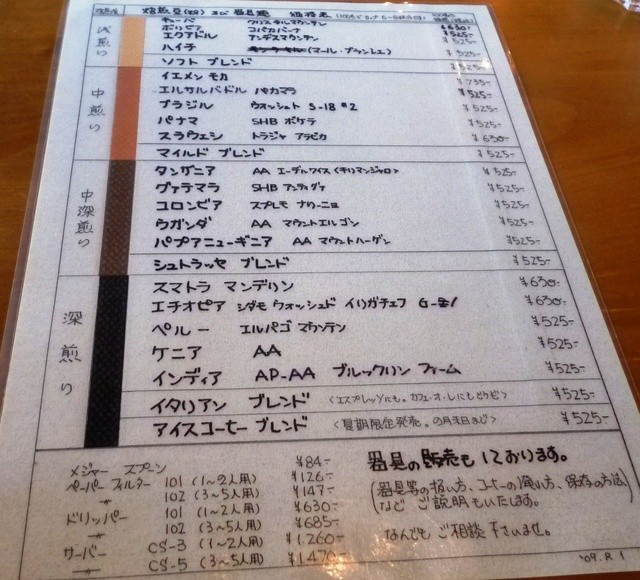 焙煎度 焙煎豆(粉) 及び 器具類 価格表
浅煎り
キューバ クリスタルマウンテン ¥630-
ボリビア コパカバーナ ¥525-
エクアドル アンデスマウンテン ¥525-
ハイチ (マール・ブランシェ) ¥525-
ソフト ブレンド ¥525-
中煎り
イエメン モカ ¥735-
エルサルバドル パカマラ ¥525-
ブラジル ウォッシュト S-18 #2 ¥525-
パナマ SHB ボケテ ¥525-
スラウェシ トラジャ アラビカ ¥630-
マイルド ブレンド ¥525-
中深煎り
タンザニア AA エーデルワイス〈キリマンジャロ〉 ¥525-
グァテマラ SHB アンティグァ ¥525-
コロンビア スプレモ ナリーニョ ¥525-
ウガンダ AA マウントエルゴン ¥525-
パプアニューギニア AA マウントハーゲン ¥525-
シュトラッセ ブレンド ¥525-
深煎り
スマトラ マンデリン ¥630-
エチオピア シダモ ウォッシュド イリガチェフ G- ¥630-
ペルー エルパゴ マウンテン ¥525-
ケニア AA ¥525-
インディア AP-AA ブルックリン ファーム ¥525-
イタリアン ブレンド 〈エスプレッソにも。カフェ・オ・レにもどうぞ〉 ¥525-
アイスコーヒー ブレンド 〈夏期限定発売。 の月末まで〉 ¥525-
メジャー スプーン ¥84-
ペーパー フィルター 101 (1〜2人用) ¥126-
〃 102 (3〜5人用) ¥147-
ドリッパー 101 (1〜2人用) ¥630-
〃 102 (3〜5人用) ¥685-
サーバー CS-3 (1〜2人用) ¥1,260-
〃 CS-5 (3〜5人用) ¥1,470-
器具の販売もしております。
(器具等の扱い方、コーヒーの淹れ方、保存の方法)
(など ご説明もいたします。)
なんでも ご相談 下さいませ。
'09.R 1